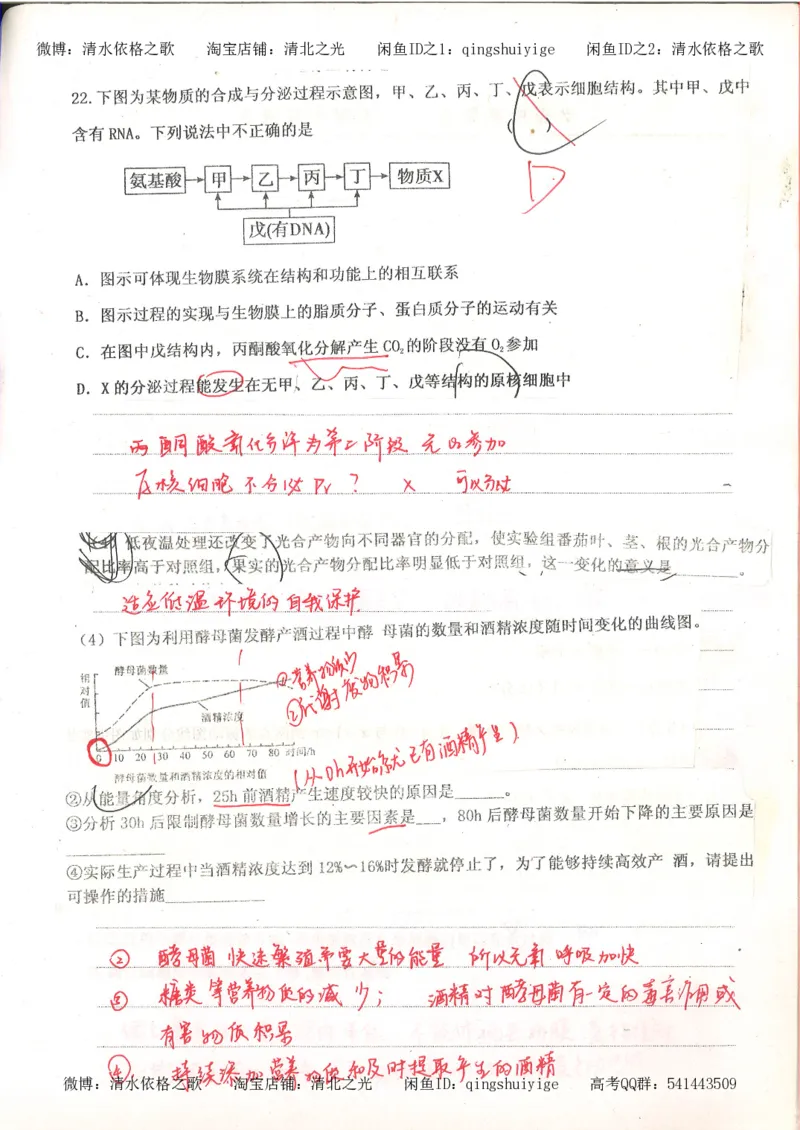 微博：清水依格之歌 淘宝店铺：清北之光 闲鱼ID之1：qingshuiyige 闲鱼ID之2：清水依格之歌
22.下图为某物质的合成与分泌过程示意图，甲、乙、丙、丁、戊表示细胞结构。其中甲、戊中
含有 RNA。下列说法中不正确的是 ( )
D
氨基酸 甲 乙 丙 丁 物质X
戊(有DNA)
A．图示可体现生物膜系统在结构和功能上的相互联系
B．图示过程的实现与生物膜上的脂质分子、蛋白质分子的运动有关
C．在图中戊结构内，丙酮酸氧化分解产生 CO₂的阶段没有 O₂参加
D．X 的分泌过程能发生在无甲、乙、丙、丁、戊等结构的原核细胞中
丙酮酸氧化分解为第二阶段 无O₂参加
原核细胞不分泌Pr？ × 可以分泌
低夜温处理还改变了光合产物向不同器官的分配，使实验组番茄叶、茎、根的光合产物分
配比率高于对照组，果实的光合产物分配比率明显低于对照组，这一变化的意义是 。
适应低温环境的自我保护
（4）下图为利用酵母菌发酵产酒过程中酵 母菌的数量和酒精浓度随时间变化的曲线图。
相对值
酵母菌数量
酒精浓度
①营养物质少
②代谢废物积累
0 10 20 30 40 50 60 70 80 时间/h
(从0h开始就已有酒精产生)
酵母菌数量和酒精浓度的相对值
②从能量角度分析，25h 前酒精产生速度较快的原因是______。
③分析 30h 后限制酵母菌数量增长的主要因素是___，80h 后酵母菌数量开始下降的主要原因是
____________
④实际生产过程中当酒精浓度达到 12%~16%时发酵就停止了，为了能够持续高效产 酒，请提出
可操作的措施____________
② 酵母菌快速繁殖需要大量的能量 所以无氧呼吸加快
③ 糖类等营养物质的减少； 酒精对酵母菌有一定的毒害作用或
有害物质积累
④ 持续添加营养物质和及时提取产生的酒精
微博：清水依格之歌 淘宝店铺：清北之光 闲鱼ID之1：qingshuiyige 高考QQ群：541443509